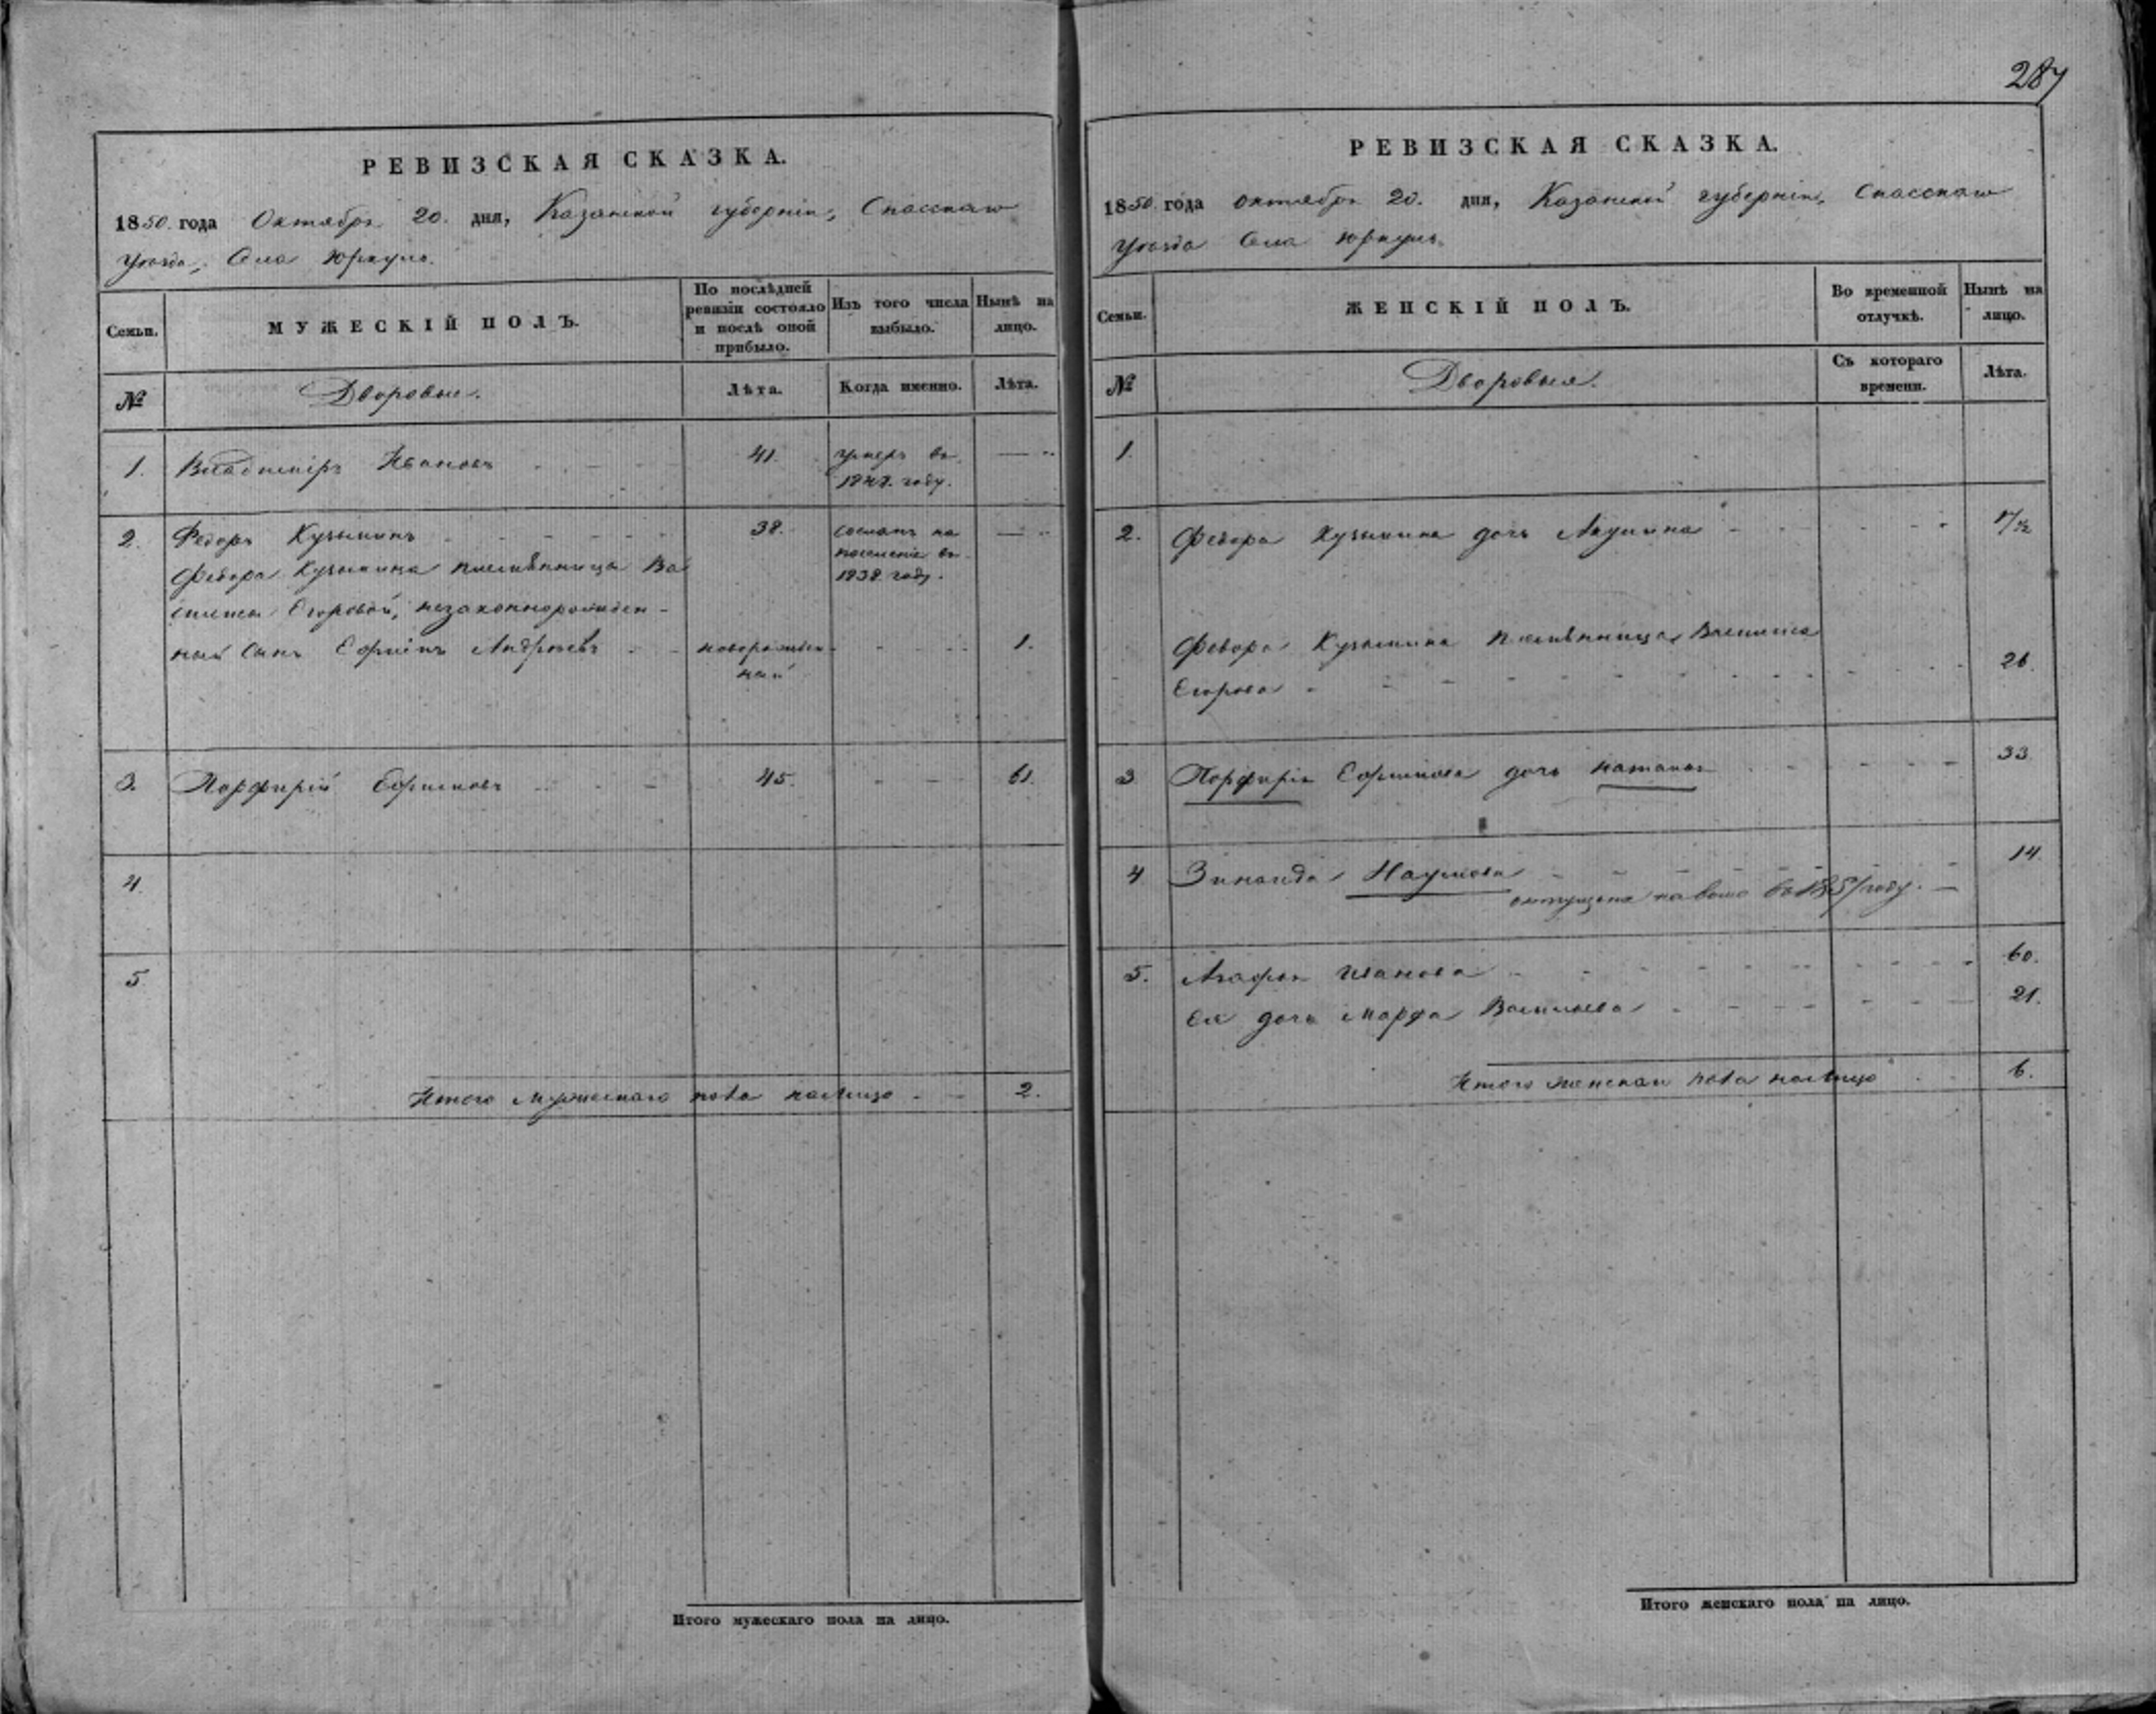 287
РЕВИЗСКАЯ СКАЗКА.
1850. года Октября 20. дня, Казанской губернiи, Спасскаго
уѣзда, Села Юркуль.
Семьи.
МУЖЕСКІЙ ПОЛЪ.
По послѣдней
ревизіи состояло
и послѣ оной
прибыло.
Изъ того числа
выбыло.
Нынѣ на
лицо.
№
Дворовые.
Лѣта.
Когда именно.
Лѣта.
1. Владимiръ Ивановъ 41. умеръ въ
году.
2. Федоръ Кузьминъ 38. сосланъ на
поселенiе въ
1838 году.
Федора Кузьмина племянницы Ва
силисы Егоровой, незаконнорожден-
ный сынъ Ефимъ Андреевъ новорожден- 1.
ный
3. Порфирiй Ефимовъ 45. 61.
4.
5
Итого мужескаго пола налицо 2.
Итого мужескаго пола на лицо.
РЕВИЗСКАЯ СКАЗКА.
1850 года октября 20. дня, Казанской губернiи, Спасскаго
уѣзда Села Юркуль.
Семьи.
ЖЕНСКІЙ ПОЛЪ.
Во временной
отлучкѣ.
Нынѣ на
лицо.
№
Дворовыя.
Съ котораго
времени.
Лѣта.
1.
2. Федора Кузьмина дочь
Федора Кузьмина племянница Василиса
Егорова 26.
3 Порфирiя Ефимова дочь Наталья 33
4 Зинаида Наумова 14.
отпущена на волю въ 1851 году.
5. Агафья Иванова 60.
Ея дочь Марфа Васильева 21.
Итого женскаго пола налицо 6.
Итого женскаго пола на лицо.